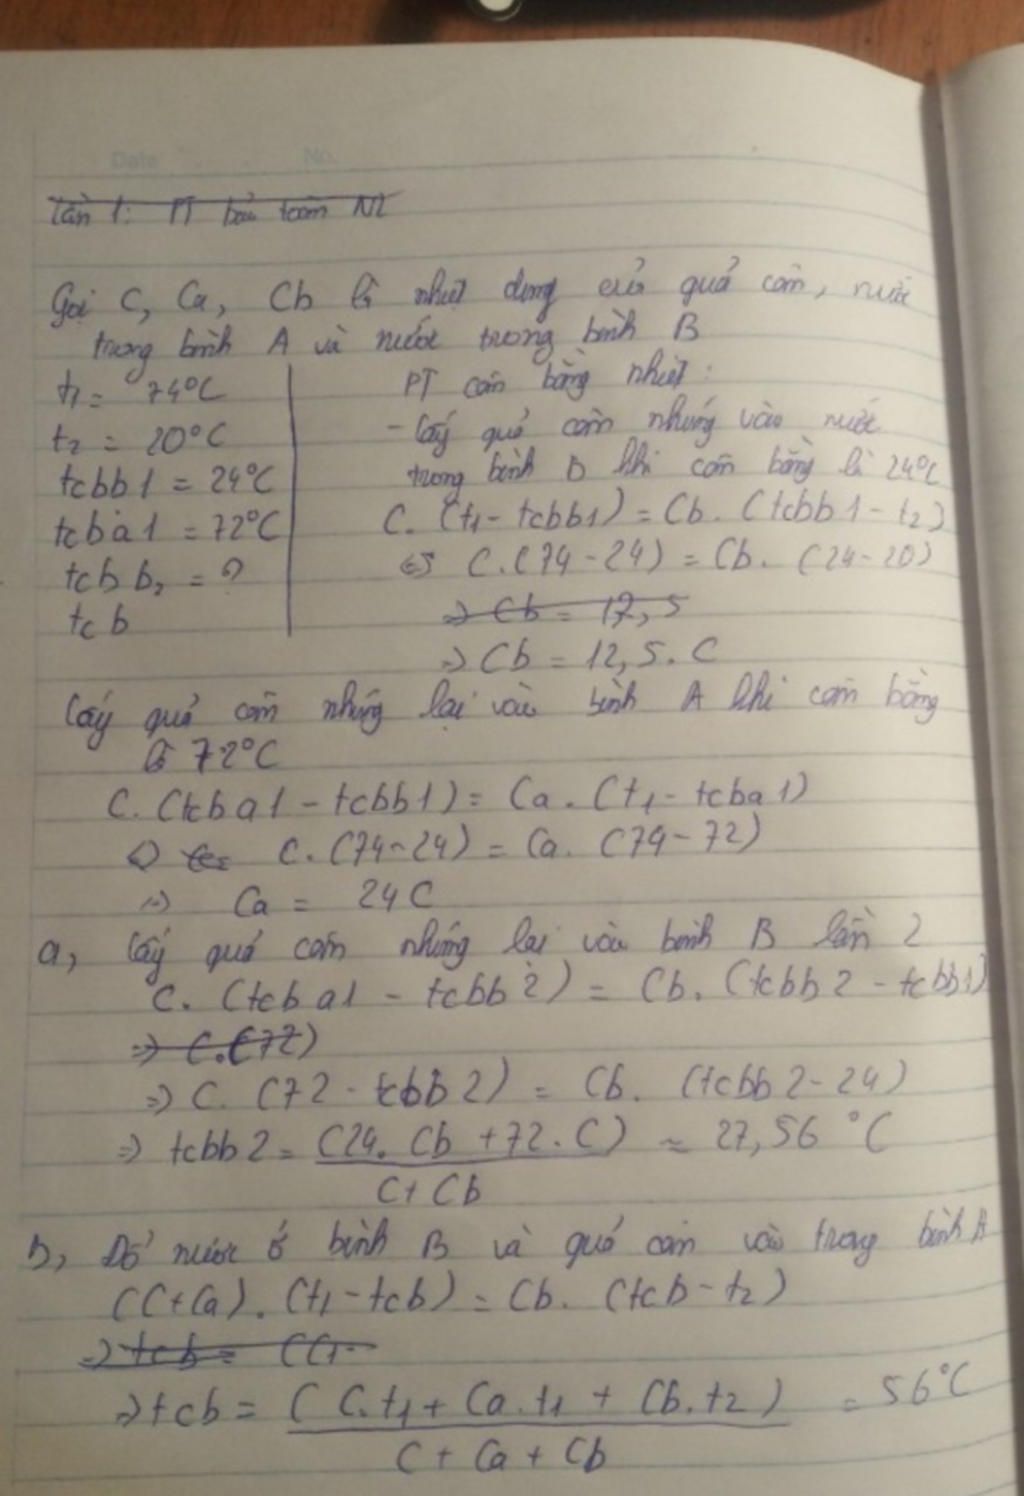 Date No.
Lần 1: PT bảo toàn NL
Gọi C, Ca, Cb là nhiệt dung của quả cân, nước
trong bình A và nước trong bình B
t₁ = 74°C
t₂ = 20°C
tcbb1 = 24°C
tcba1 = 72°C
tcbb₂ = ?
tcb
PT cân bằng nhiệt:
- Lấy quả cân nhúng vào nước
trong bình B khi cân bằng là 24°C
C. (t₁ - tcbb1) = Cb. (tcbb1 - t₂)
<=> C.(74 - 24) = Cb. (24 - 20)
=> Cb = 12,5
=> Cb = 12,5. C
Lấy quả cân nhúng lại vào bình A khi cân bằng
là 72°C
C. (tcba1 - tcbb1) = Ca. (t₁ - tcba1)
<=> C. (74 - 24) = Ca. (74 - 72)
=> Ca = 24C
a, Lấy quả cân nhúng lại vào bình B lần 2
C. (tcba1 - tcbb2) = Cb. (tcbb2 - tcbb1)
=> C.(72)
=> C. (72 - tcbb2) = Cb. (tcbb2 - 24)
=> tcbb2 = (24. Cb + 72. C) / C + Cb = 27,56 °C
b, Đổ nước ở bình B và quả cân vào trong bình A
(C+Ca). (t₁ - tcb) = Cb. (tcb - t₂)
=> tcb = (C.t₁ + Ca.t₁ + Cb.t₂) / C + Ca + Cb = 56°C